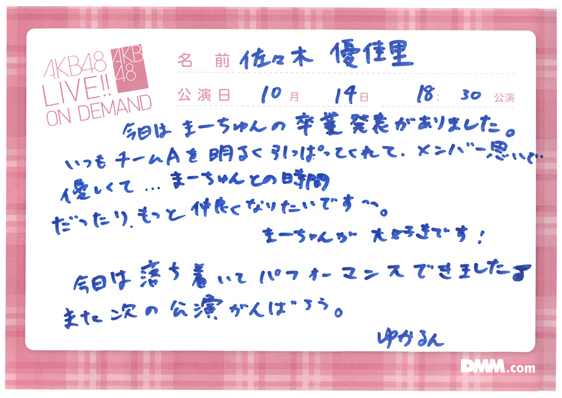 AKB48
LIVE!!
ON DEMAND
AKB
48
名前 佐々木 優佳里
公演日 10月 14日 18:30公演
今日は まーちゅんの 卒業発表がありました。
いつも チームAを 明るく 引っぱってくれて、メンバー思いで…
優しくて… まーちゅんとの時間
だったり、もっと 仲良くなりたいです〜。
まーちゅんが 大好きです!
今日は 落ち着いて パフォーマンスできました♪
また次の 公演がんばろう。
ゆかるん
DMM.com